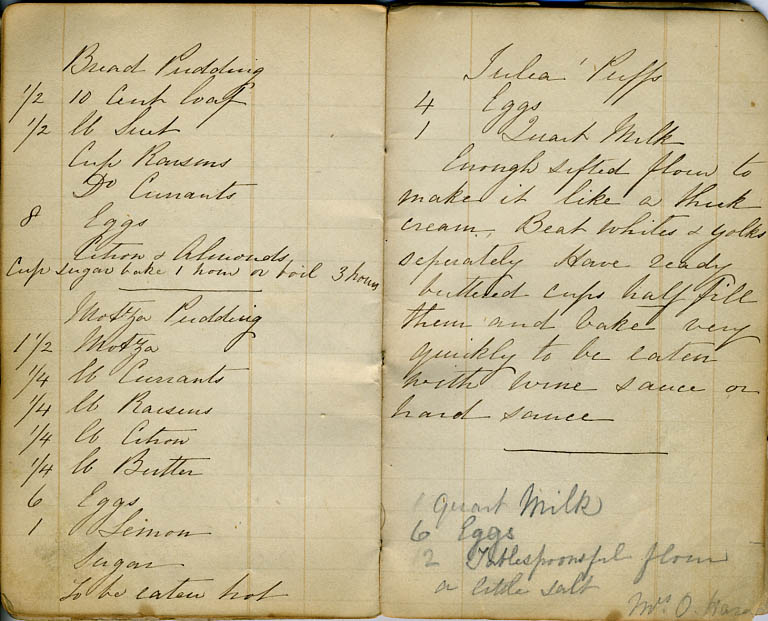 Bread Pudding
1/2 10 Cent loaf
1/2 lb Suet
Cup Raisens
Do Currants
8 Eggs
Citron & Almonds
Cup sugar bake 1 hour or boil 3 hours
Motza Pudding
1 1/2 Motza
1/4 lb Currants
1/4 lb Raisens
1/4 lb Citron
1/4 lb Butter
6 Eggs
1 Lemon
Sugar
To be eaten hot
Julea' Puffs
4 Eggs
1 Quart Milk
Enough sifted flour to
make it like a thick
cream. Beat whites & yolks
seperately Have ready
buttered cups half fill
them and bake very
quickly to be eaten
with wine sauce or
hard sauce
1 quart Milk
6 Eggs
12 Tablespoonsful flour
a little salt
Mrs O.